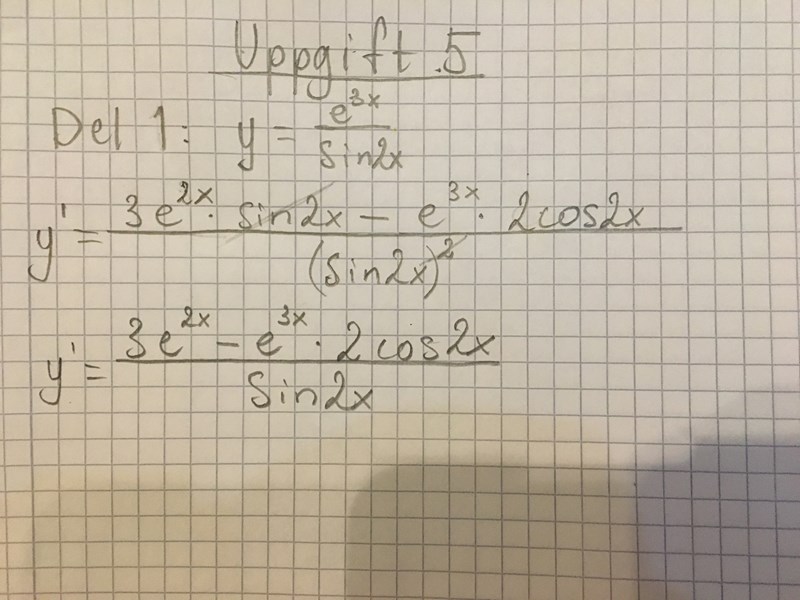 Uppgift 5
Del 1: y = e^{3x} / sin2x
y' = (3e^{2x} · sin2x − e^{3x} · 2cos2x) / (sin2x)^2
y' = (3e^{2x} − e^{3x} · 2cos2x) / sin2x